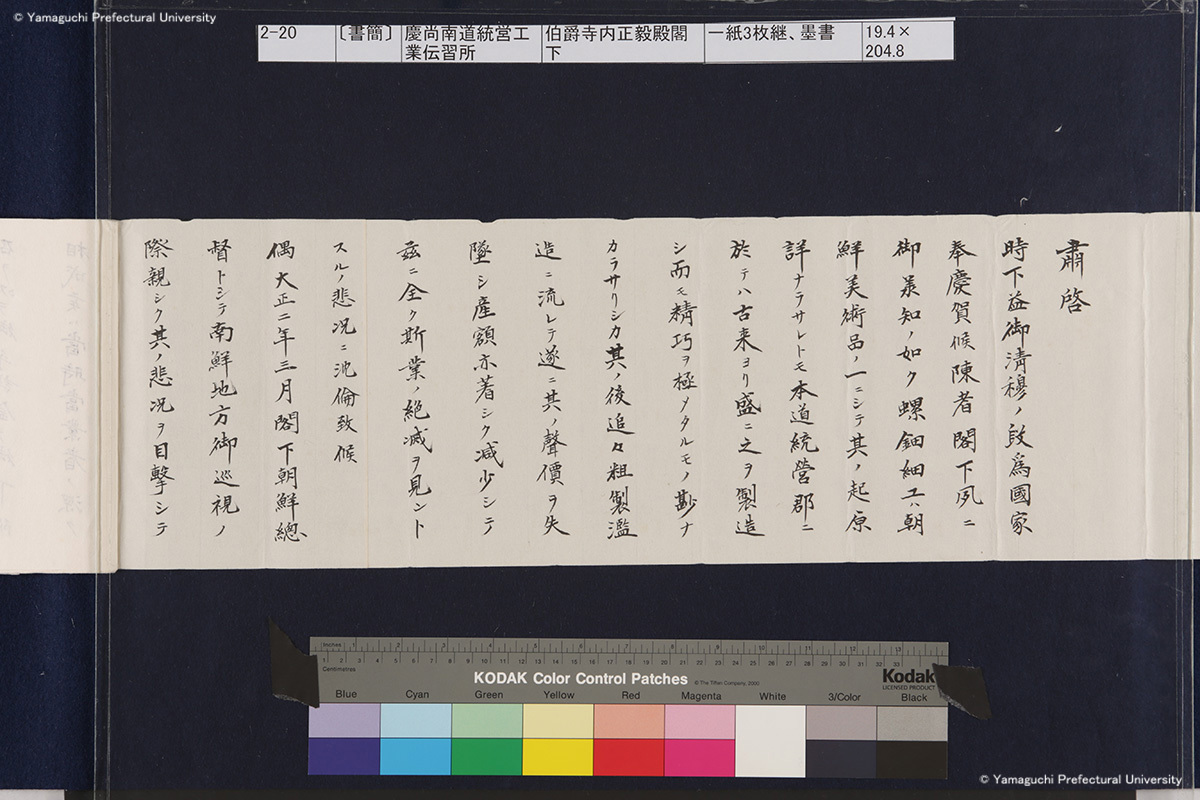 © Yamaguchi Prefectural University
2-20
〔書簡〕
慶尚南道統営工
業伝習所
伯爵寺内正毅殿閣
下
一紙3枚継、墨書
19.4×
204.8
肅啓
時下益御清穆ノ段為國家
奉慶賀候陳者閣下夙ニ
御承知ノ如ク螺鈿細工ハ朝
鮮美術品ノ一ニシテ其ノ起原
詳ナラサレトモ本道統營郡ニ
於テハ古来ヨリ盛ニ之ヲ製造
シ而モ精巧ヲ極メタルモノ尠ナ
カラサリシカ其ノ後追々粗製濫
造ニ流レテ遂ニ其ノ聲價ヲ失
墜シ産額亦著シク減少シテ
茲ニ全ク斯業ノ絶滅ヲ見ント
スルノ悲况ニ沈倫致候
偶大正二年三月閣下朝鮮總
督トシテ南鮮地方御巡視ノ
際親シク其ノ悲况ヲ目擊シテ
Inches
Centimetres
KODAK Color Control Patches
© The Tiffen Company, 2000
Kodak
LICENSED PRODUCT
Blue Cyan Green Yellow Red Magenta White 3/Color Black
© Yamaguchi Prefectural University